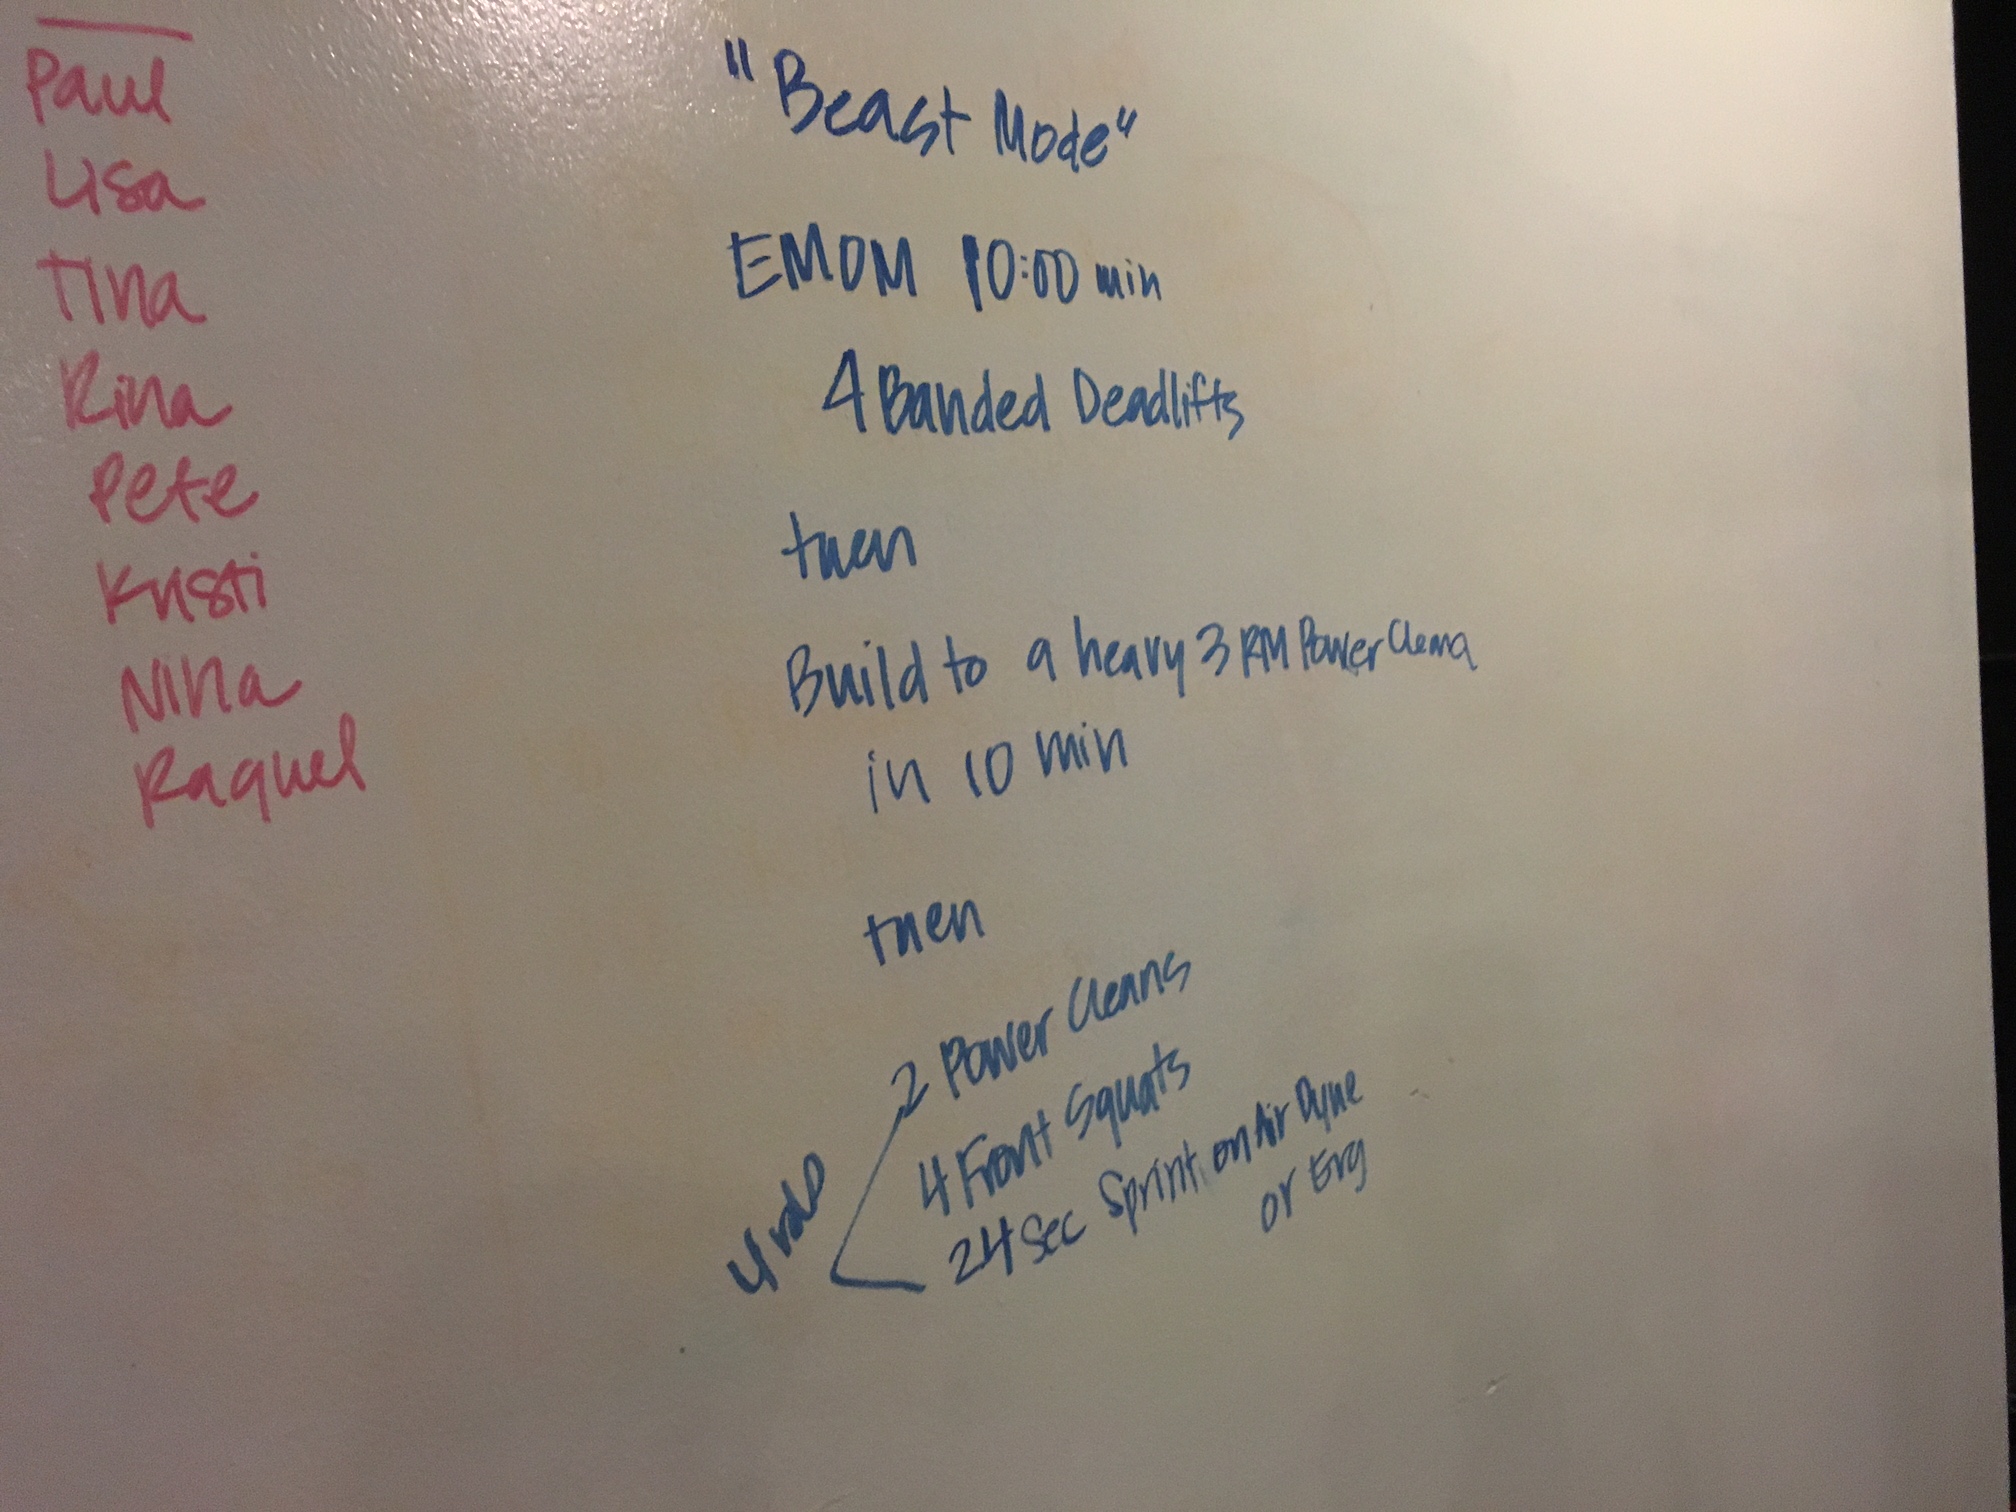 Paul
Lisa
Tina
Rina
Pete
Kristi
Nina
Raquel
"Beast Mode"
EMOM 10:00 min
4 Banded Deadlifts
then
Build to a heavy 3 RM Power Clean
in 10 min
then
4 rds
2 Power Cleans
4 Front Squats
24 Sec Sprint on Air Dyne
or Erg